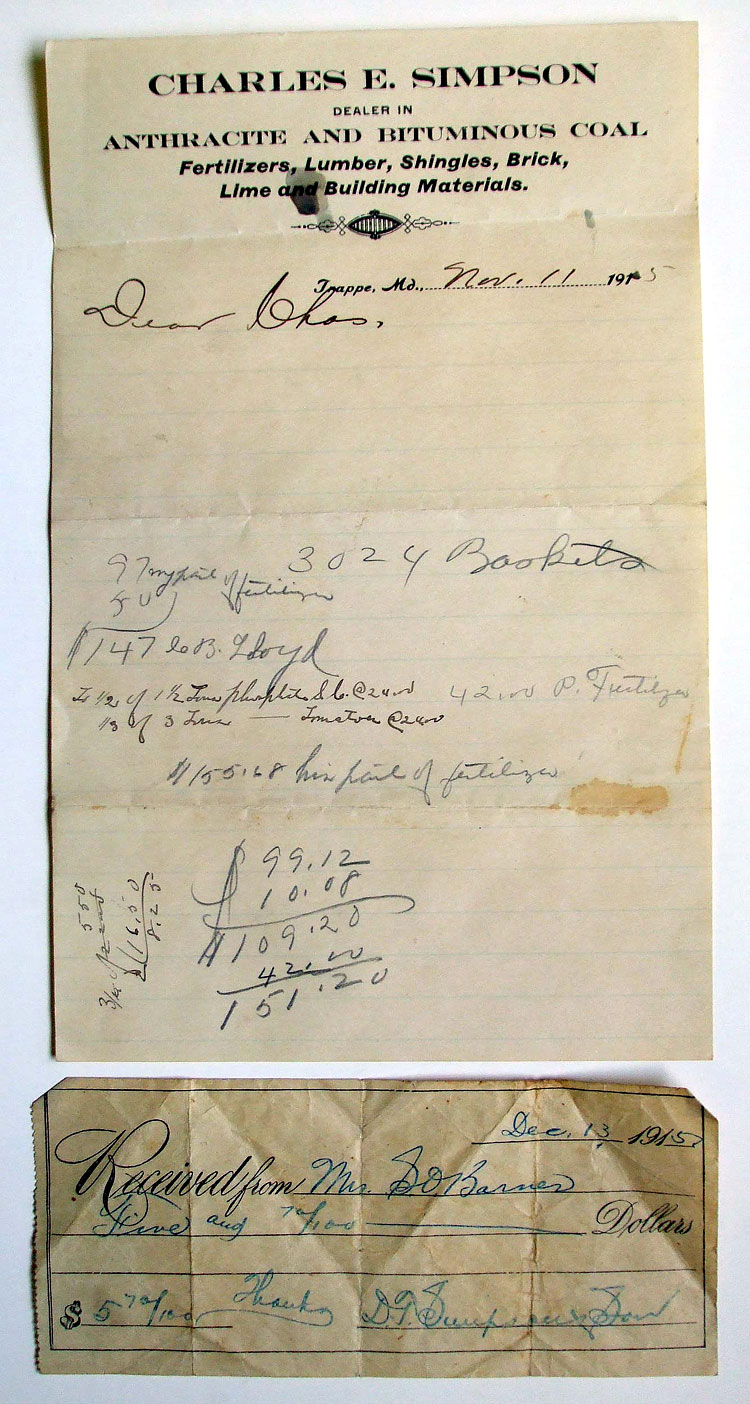 CHARLES E. SIMPSON
DEALER IN
ANTHRACITE AND BITUMINOUS COAL
Fertilizers, Lumber, Shingles, Brick,
Lime and Building Materials.
Trappe, Md., Nov. 11 1915
Dear Chas,
3024 Baskets
97 my part of fertilizer
50
$147 B. Lloyd
To 1/2 of 1 1/2 Tons phosphate @24.00
42.00 P. Fertilizer
1/3 of 3 Tons — Tomatoes @24.00
$155.68 his part of fertilizer
$ 99.12
10.08
$109.20
42.00
151.20
550
16.50
8.25
Dec. 13, 1915
Received from Mr. S D Barnes
Five and 70/100 Dollars
$ 5 70/100 Thanks D.T. Simpson & Son